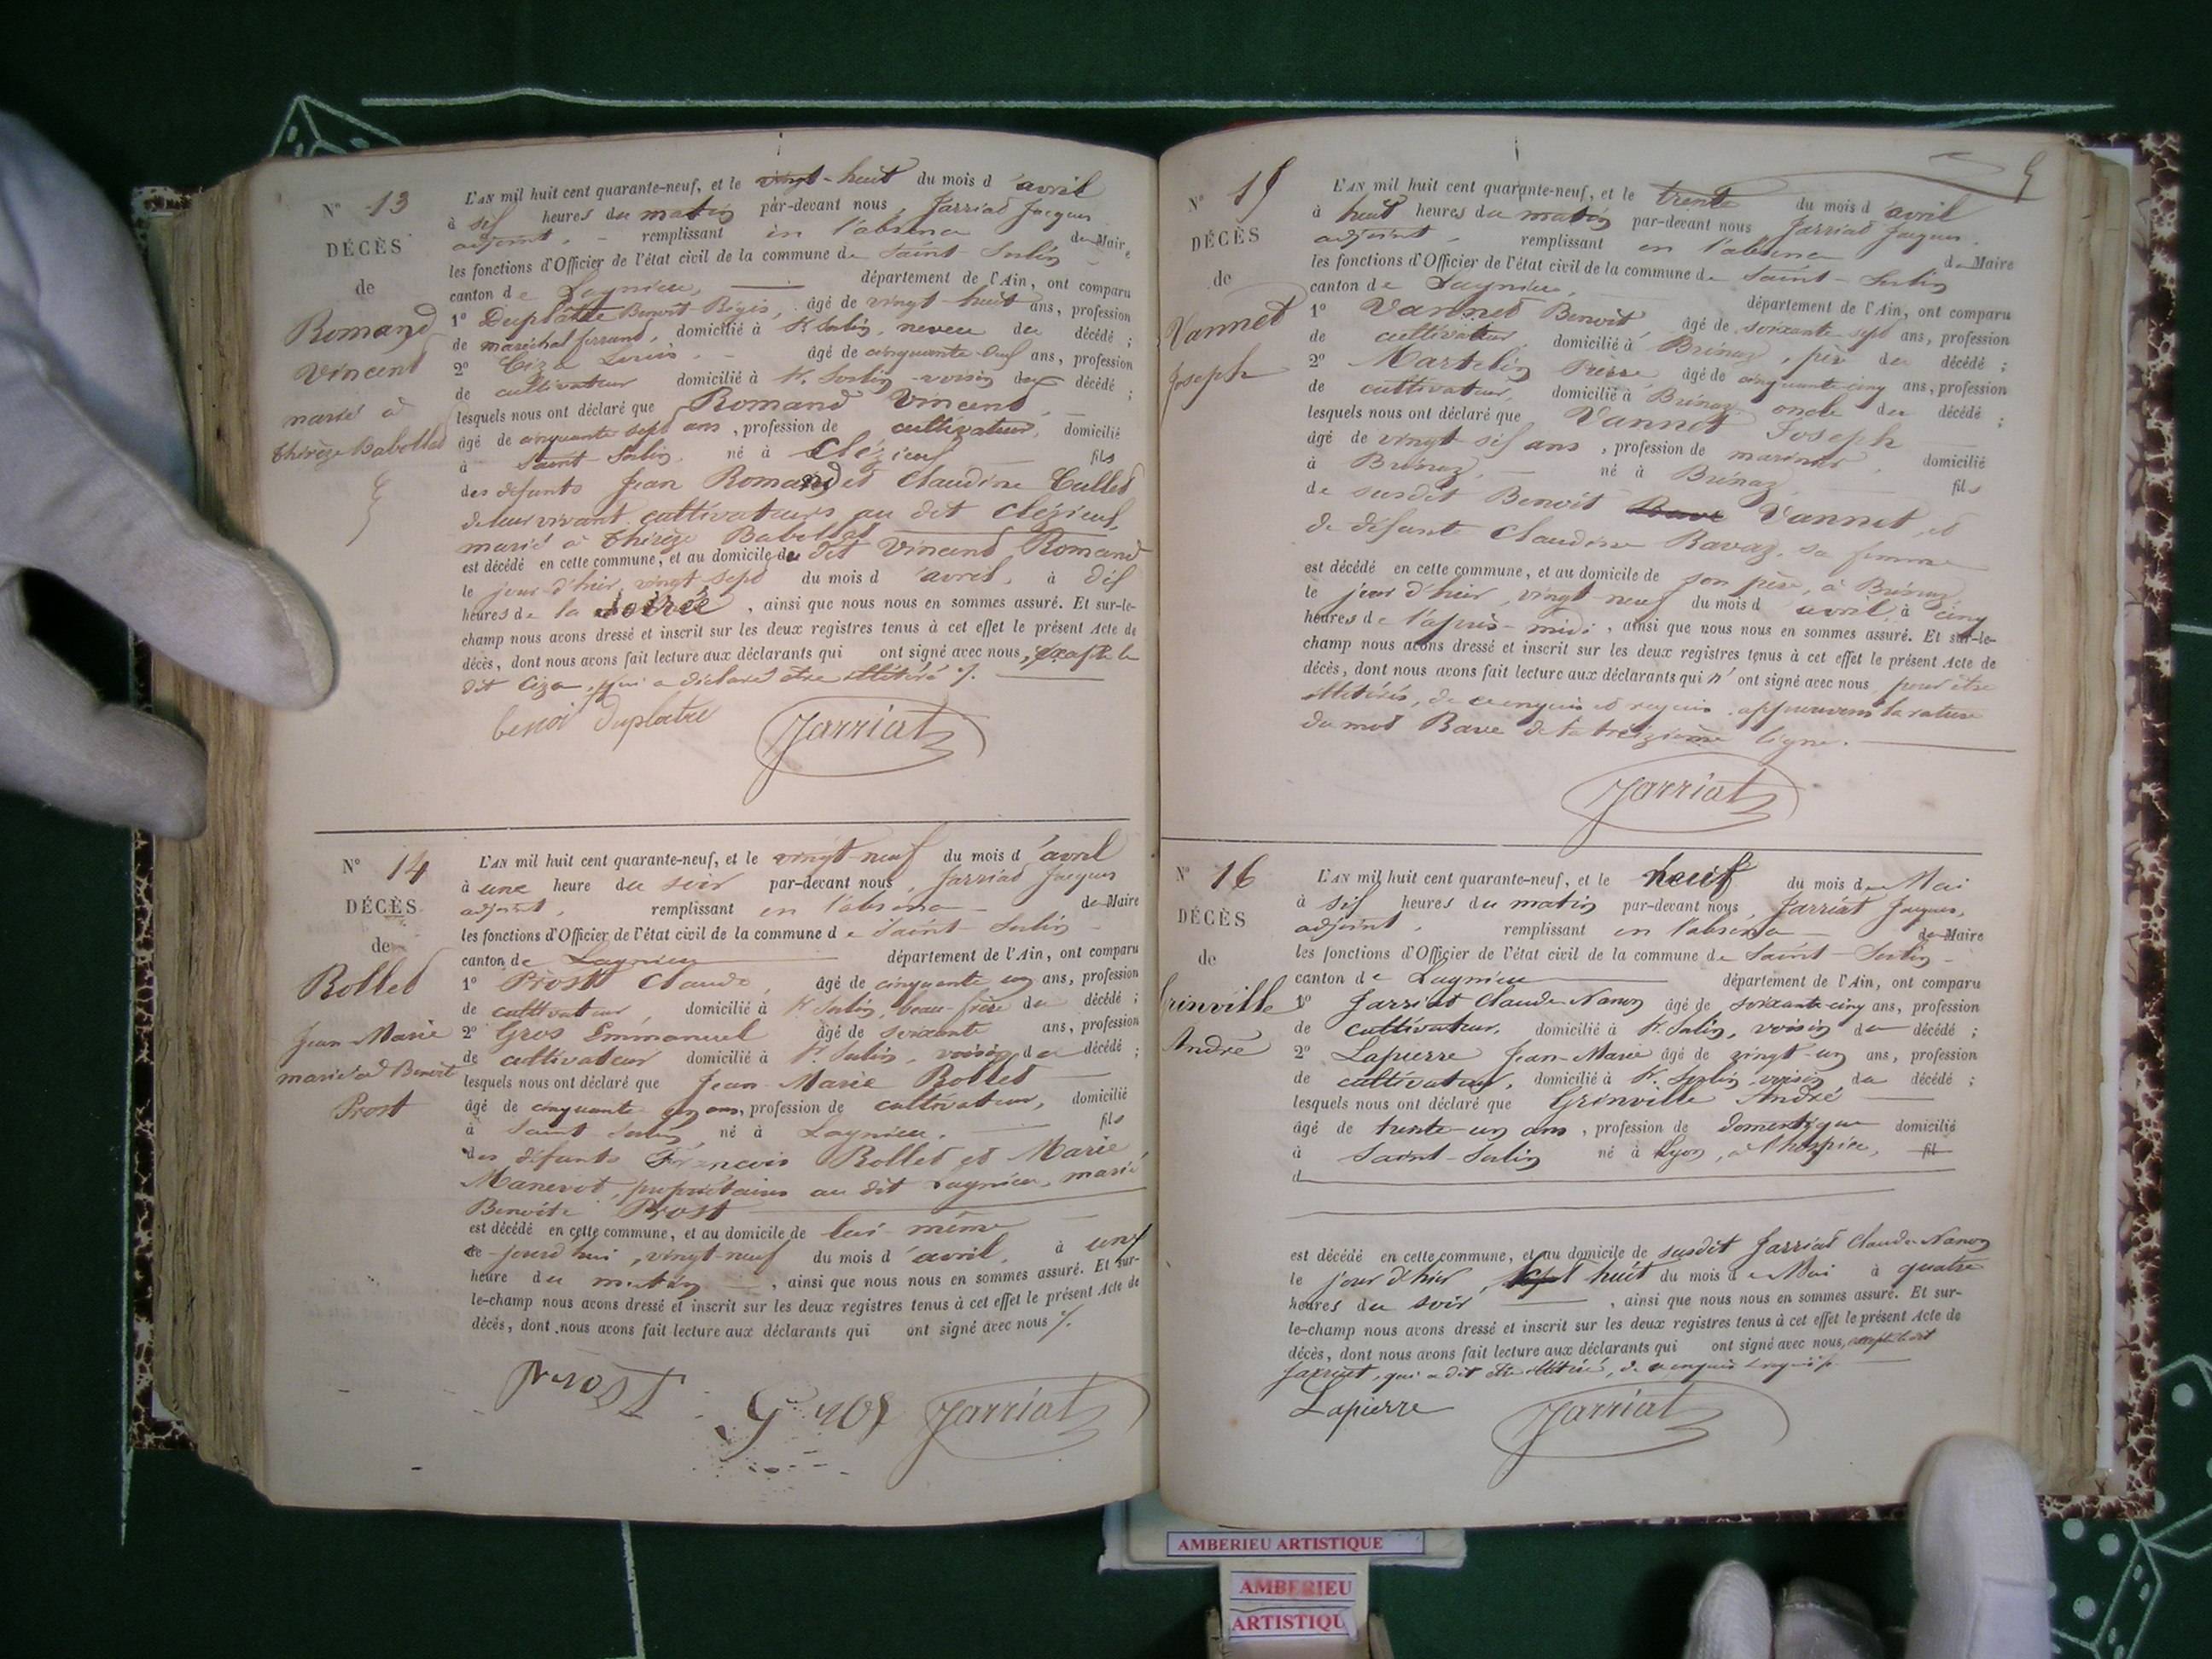 N° 13
DÉCÈS
de
Romand
Vincent
marié à
thérèze Babollat
L'AN mil huit cent quarante-neuf, et le vingt-huit du mois d'avril
à six heures du matin par-devant nous, Jarriat Jacques
adjoint, remplissant en l'absence du Maire
les fonctions d'Officier de l'état civil de la commune de Saint-Sorlin
canton de Lagnieu, département de l'Ain, ont comparu
1° Duplâtre Benoit-Régis, âgé de vingt-huit ans, profession
de maréchal ferrand, domicilié à St Sorlin, neveu du décédé ;
2° Ciza Louis, âgé de cinquante-neuf ans, profession
de cultivateur domicilié à St. Sorlin voisin du décédé ;
lesquels nous ont déclaré que Romand Vincent
âgé de cinquante sept ans, profession de cultivateur, domicilié
à Saint-Sorlin, né à Clézieux fils
des défunts Jean Romand et Claudine Cullet
de leur vivant cultivateurs au dit Clézieux,
marié à thérèze Babollat
est décédé en cette commune, et au domicile du dit Vincent Romand
le jour d'hier, vingt-sept du mois d'avril, à dix
heures de la soirée, ainsi que nous nous en sommes assuré. Et sur-le-
champ nous avons dressé et inscrit sur les deux registres tenus à cet effet le présent Acte de
décès, dont nous avons fait lecture aux déclarants qui ont signé avec nous, excepté le
dit Ciza, qui a déclaré être illétéré %.
benoi Duplatre Jarriat
N° 14
DÉCÈS
de
Bollet
Jean-Marie
marié à Benoite
Prost
L'AN mil huit cent quarante-neuf, et le vingt-neuf du mois d'avril
à une heure du soir par-devant nous, Jarriat Jacques
adjoint, remplissant en l'absence du Maire
les fonctions d'Officier de l'état civil de la commune de Saint-Sorlin
canton de Lagnieu département de l'Ain, ont comparu
1° Prost Claude, âgé de cinquante un ans, profession
de cultivateur, domicilié à St Sorlin, beau-frère du décédé ;
2° Gros Emmanuel âgé de soixante ans, profession
de cultivateur domicilié à St Sorlin, voisin du décédé ;
lesquels nous ont déclaré que Jean-Marie Bollet
âgé de cinquante ans, profession de cultivateur, domicilié
à Saint-Sorlin, né à Lagnieu, fils
des défunts François Bollet et Marie
Manevot, propriétaires au dit Lagnieu, marié
Benoite Prost
est décédé en cette commune, et au domicile de lui-même
ce-jourd'hui, vingt-neuf du mois d'avril, à une
heure du matin, ainsi que nous nous en sommes assuré. Et sur-
le-champ nous avons dressé et inscrit sur les deux registres tenus à cet effet le présent Acte de
décès, dont nous avons fait lecture aux déclarants qui ont signé avec nous %.
Prost Gros Jarriat
N° 15
DÉCÈS
de
Vannet
Joseph
L'AN mil huit cent quarante-neuf, et le trente du mois d'avril
à huit heures du matin par-devant nous Jarriat Jacques,
adjoint, remplissant en l'absence du Maire
les fonctions d'Officier de l'état civil de la commune de Saint-Sorlin
canton de Lagnieu, département de l'Ain, ont comparu
1° Vannet Benoît, âgé de soixante-sept ans, profession
de cultivateur, domicilié à Brénaz, père du décédé ;
2° Martelin Pierre, âgé de cinquante-cinq ans, profession
de cultivateur, domicilié à Brénaz oncle du décédé ;
lesquels nous ont déclaré que Vannet Joseph
âgé de vingt-six ans, profession de marinier, domicilié
à Brénaz, né à Brénaz fils
de susdit Benoît Bave Vannet, et
de défunte Claudine Ravaz, sa femme
est décédé en cette commune, et au domicile de son père, à Brénaz,
le jour d'hier, vingt-neuf du mois d'avril, à cinq
heures de l'après-midi, ainsi que nous nous en sommes assuré. Et sur-le-
champ nous avons dressé et inscrit sur les deux registres tenus à cet effet le présent Acte de
décès, dont nous avons fait lecture aux déclarants qui n'ont signé avec nous pour être
illétérés, de ce enquis et requis. approuvons la rature
du mot Bave de la treizième ligne.
Jarriat
N° 16
DÉCÈS
de
Grinville
André
L'AN mil huit cent quarante-neuf, et le neuf du mois de Mai
à six heures du matin par-devant nous, Jarriat Jacques,
adjoint, remplissant en l'absence du Maire
les fonctions d'Officier de l'état civil de la commune de Saint-Sorlin
canton de Lagnieu département de l'Ain, ont comparu
1° Jarriat Claude-Nanon âgé de soixante-cinq ans, profession
de cultivateur, domicilié à St. Sorlin, voisin du décédé ;
2° Lapierre Jean-Marie âgé de vingt-un ans, profession
de cultivateur, domicilié à St. Sorlin voisin du décédé ;
lesquels nous ont déclaré que Grinville André
âgé de trente-un ans, profession de domestique domicilié
à Saint-Sorlin né à Lyon, à l'hospice, fil
d
est décédé en cette commune, et au domicile de susdit Jarriat Claude-Nanon
le jour d'hier, sept huit du mois de Mai à quatre
heures du soir, ainsi que nous nous en sommes assuré. Et sur-
le-champ nous avons dressé et inscrit sur les deux registres tenus à cet effet le présent Acte de
décès, dont nous avons fait lecture aux déclarants qui ont signé avec nous, excepté le dit
Jarriat, qui a dit être illétéré, de ce enquis & requis %.
Lapierre Jarriat
AMBERIEU ARTISTIQUE
AMBERIEU
ARTISTIQU